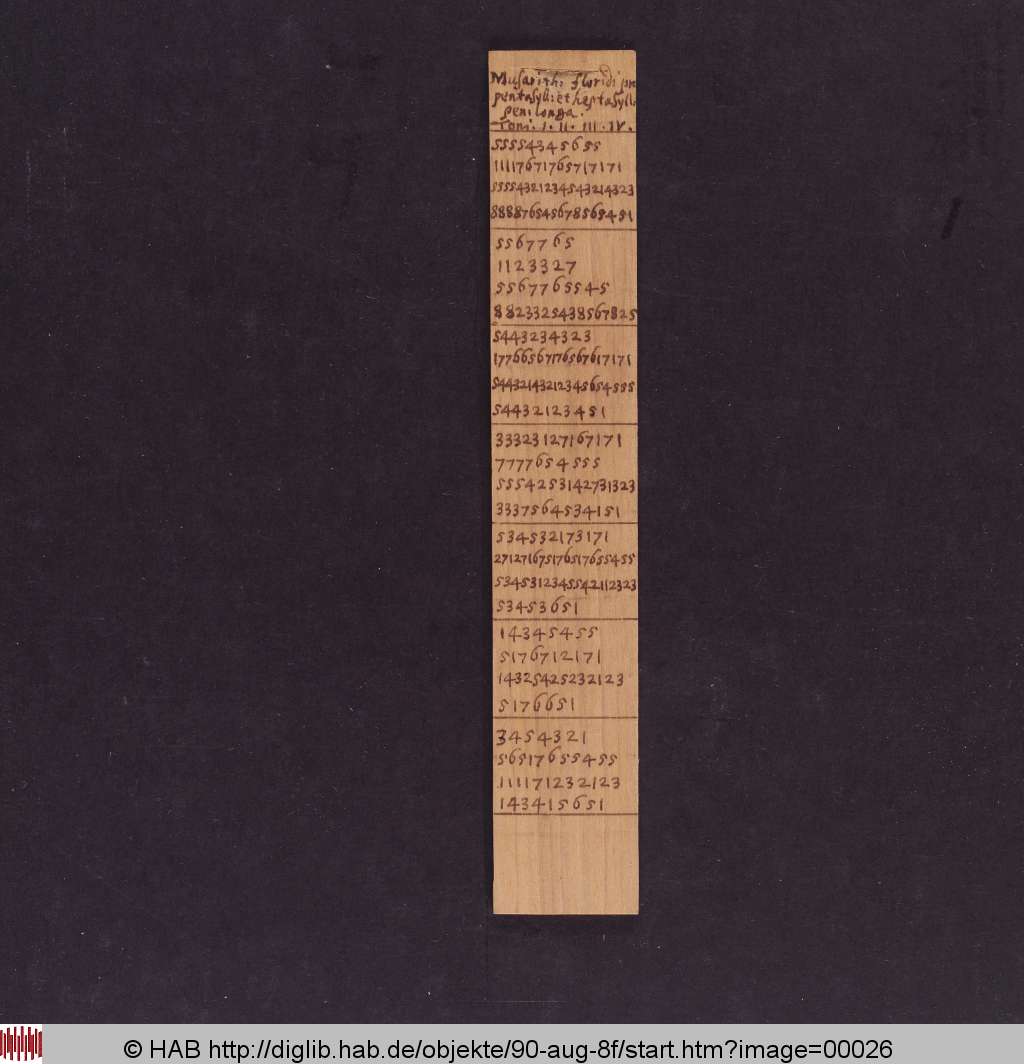 Musarith: floridi pro
pentasyll: et heptasyll:
penl longa.
Toni. I. II. III. IV.
5554345655
11117671765717171
55554321234543214323
88887654567856984 81
5567765
1123327
5567765545
88233254385678 25
5443234323
177665671765676 17171
54432143212345654555
5443212345 1
33323127167171
7777654555
5554253142731323
33375645341 51
534532173171
27127167517651765 5455
534531234554211 2323
53453651
14345455
5176712171
1432542523 2123
5176651
3454321
565176554 55
111171232123
143415651
© HAB http://diglib.hab.de/objekte/90-aug-8f/start.htm?image=00026